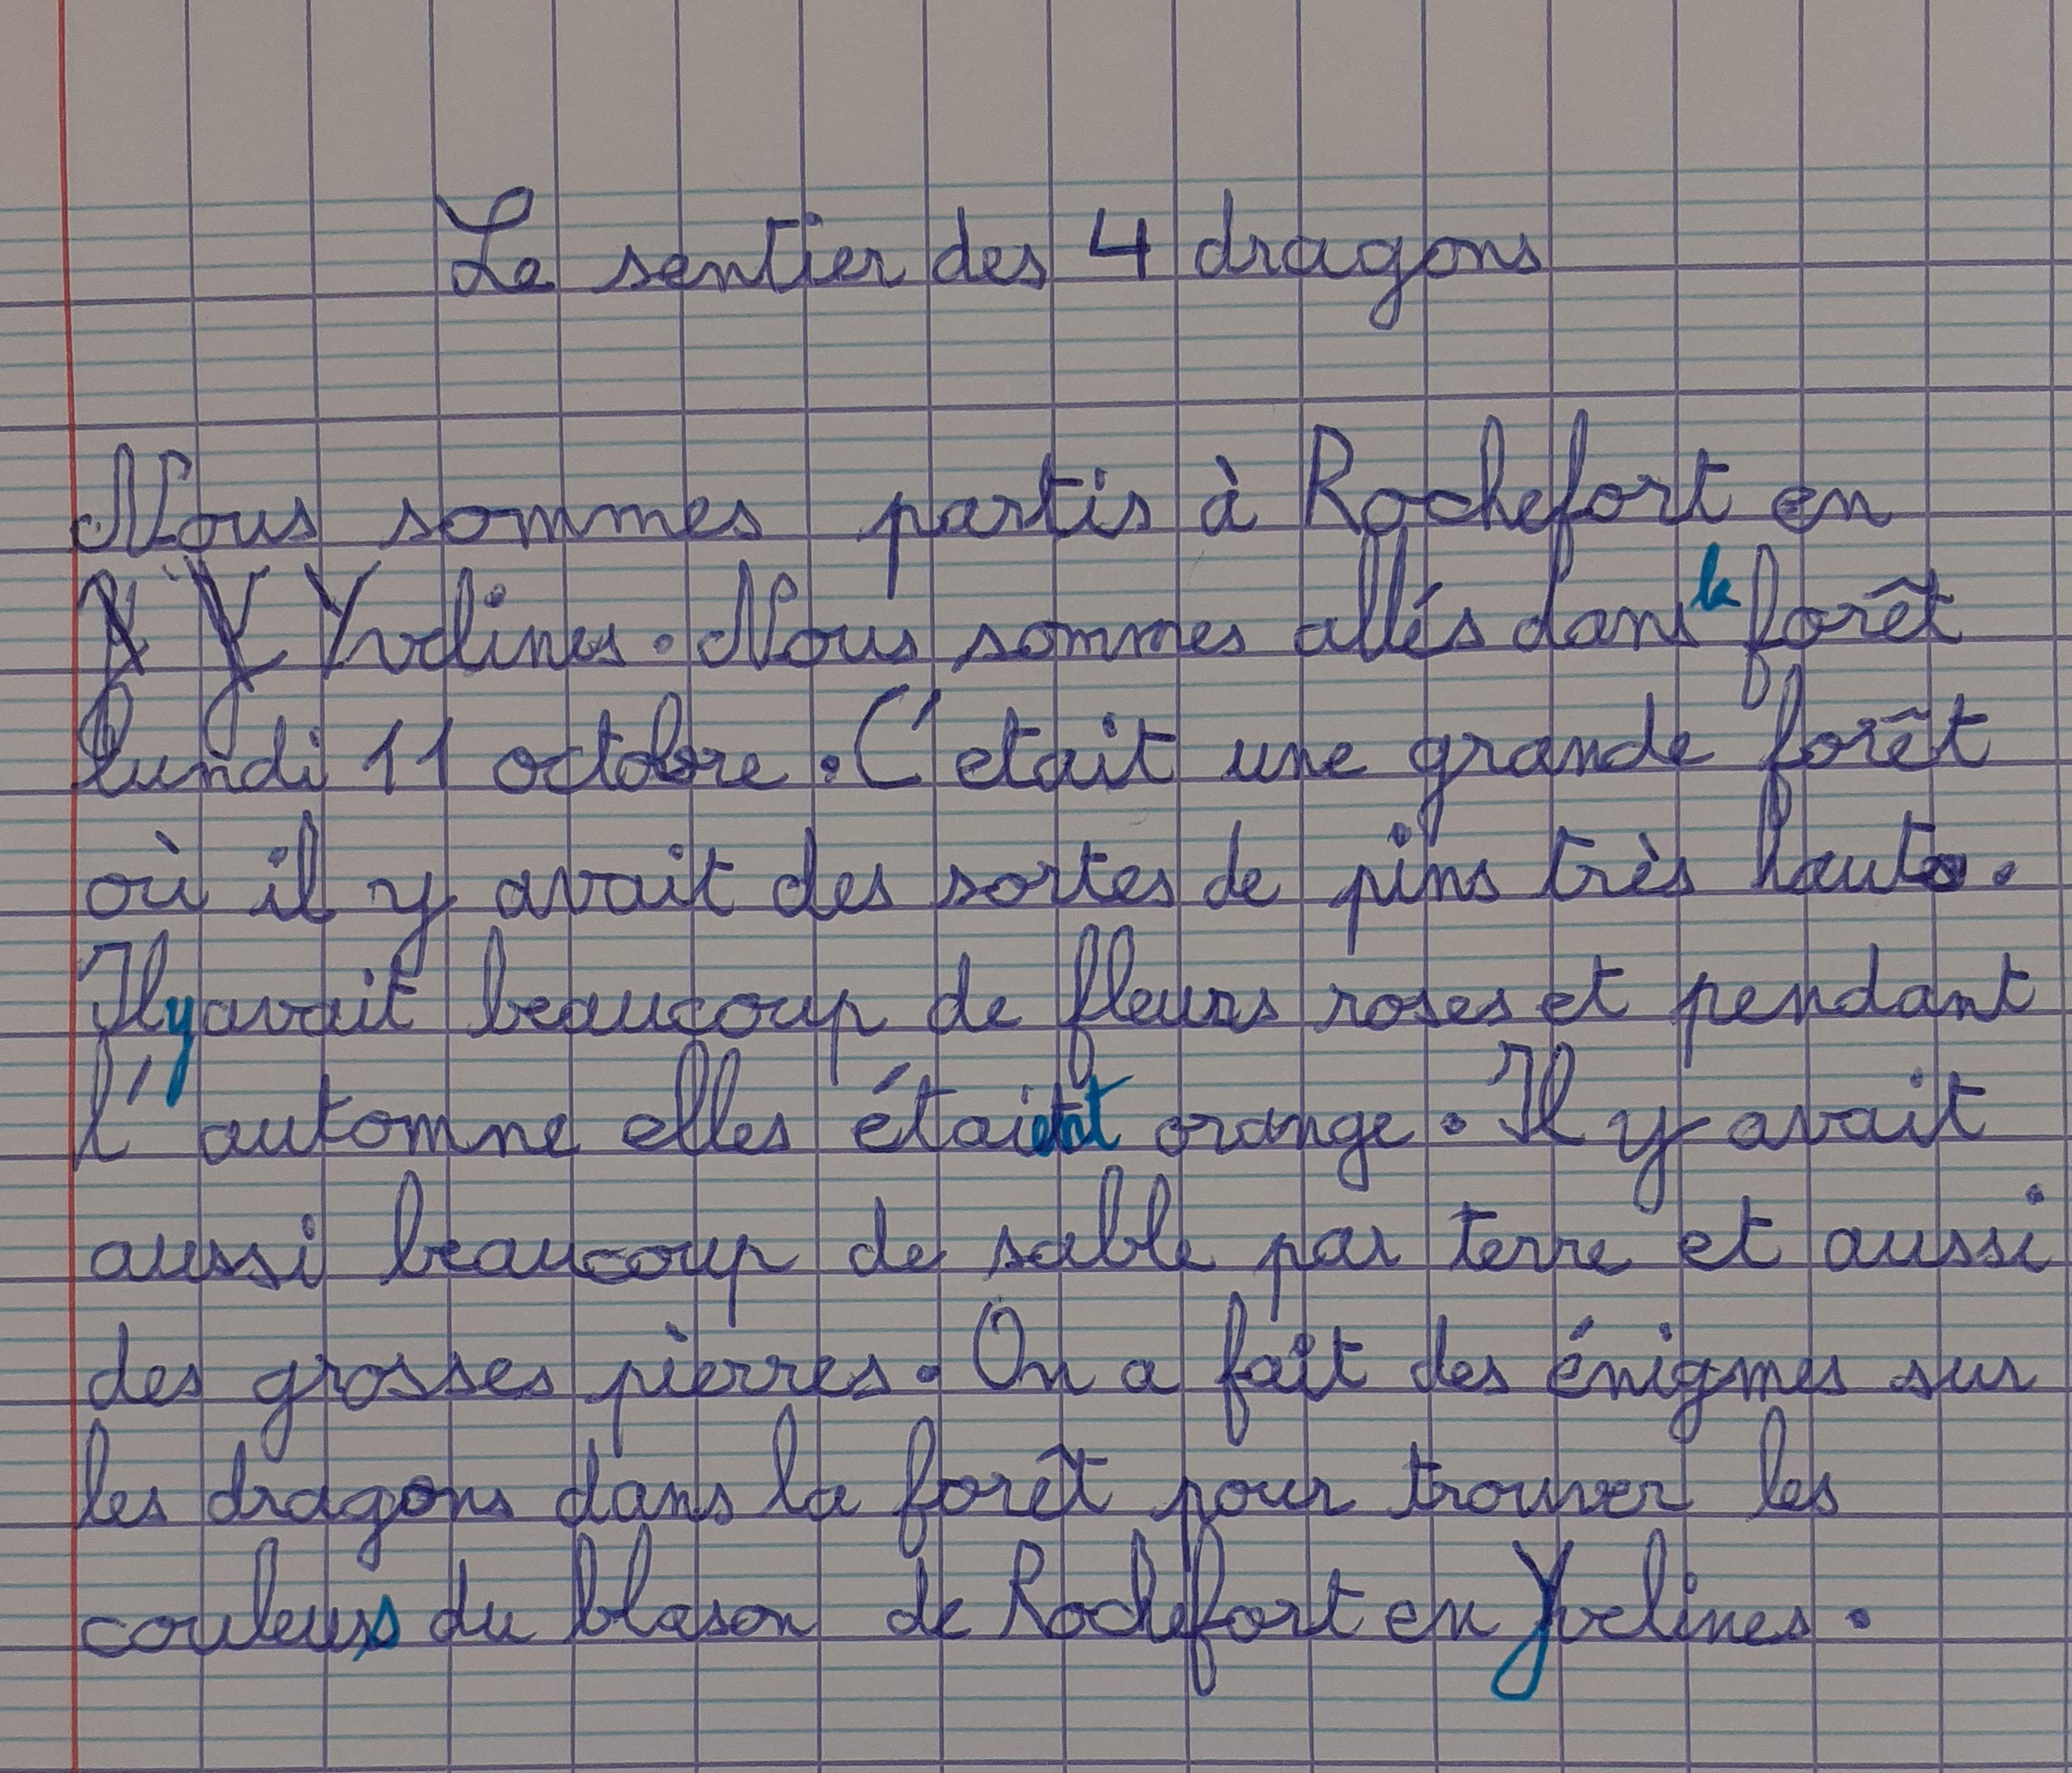 Le sentier des 4 dragons
Nous sommes partis à Rochefort en
Yvelines. Nous sommes allés dans la forêt
lundi 11 octobre. C'etait une grande forêt
où il y avait des sortes de pins très hauts.
Il y avait beaucoup de fleurs roses et pendant
l'automne elles étaient orange. Il y avait
aussi beaucoup de sable par terre et aussi
des grosses pièrres. On a fait des énigmes sur
les dragons dans la forêt pour trouver les
couleurs du blason de Rochefort en Yvelines.